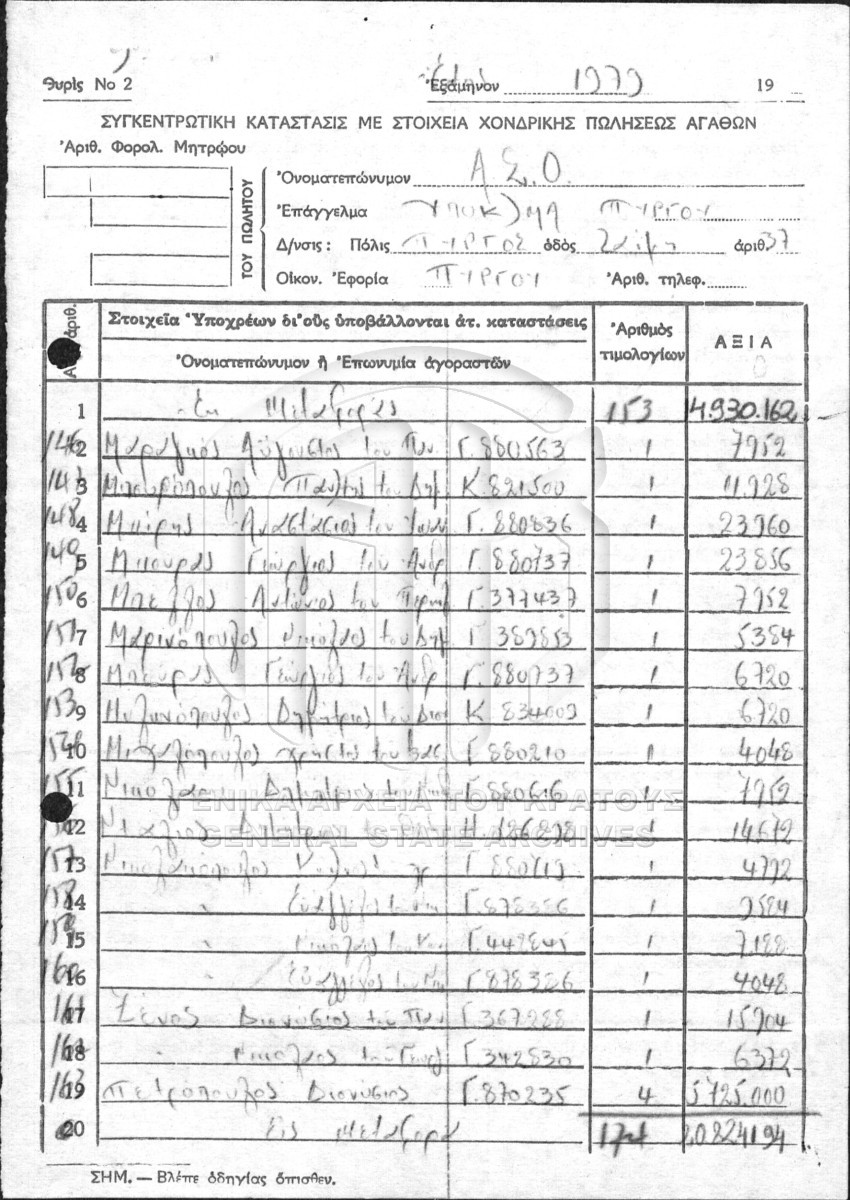 Θυρὶς Νο 2
Ἑξάμηνον 1979 19
ΣΥΓΚΕΝΤΡΩΤΙΚΗ ΚΑΤΑΣΤΑΣΙΣ ΜΕ ΣΤΟΙΧΕΙΑ ΧΟΝΔΡΙΚΗΣ ΠΩΛΗΣΕΩΣ ΑΓΑΘΩΝ
Ἀριθ. Φορολ. Μητρῴου
ΤΟΥ ΠΩΛΗΤΟΥ
Ὀνοματεπώνυμον Α.Σ.Ο.
Ἐπάγγελμα ΥΠΟΚ/ΜΑ ΠΥΡΓΟΥ
Δ/νσις: Πόλις ΠΥΡΓΟΣ ὁδὸς ἀριθ. 37
Οἰκον. Ἐφορία ΠΥΡΓΟΥ Ἀριθ. τηλεφ.
Στοιχεῖα Ὑποχρέων δι' οὓς ὑποβάλλονται ἀτ. καταστάσεις
Ὀνοματεπώνυμον ἢ Ἐπωνυμία ἀγοραστῶν
Ἀριθμὸς τιμολογίων
ΑΞΙΑ
1 Εκ Μεταφοράς 153 14.930.162
2 Μαραγκός Αύγουστος του Παν Γ.880563 1 7952
3 του Δημ Κ.821500 1 11928
4 Μπίρης Αναστάσιος του Γ.880836 1 23960
5 Μπούρας Γεώργιος του Ανδρ Γ.880737 1 23856
150 6 Μπέλλος Αντώνιος του Γ.377437 1 7952
151 7 Μαρινόπουλος Νικόλαος του Δημ Γ 389853 1 5384
152 8 Μπούρας Γεώργιος του Ανδρ Γ.880737 1 6720
153 9 Μυλωνόπουλος Δημήτριος του Διον Κ 834009 1 6720
10 Μιχαλόπουλος Χρήστος του Γ.880210 1 4048
155 11 Δημήτριος του Γ.880616 1 7952
12 Η.126898 1 14672
157 13 Γ.880819 1 4792
14 " Ευάγγελος Γ.878386 1 9584
15 " Νικόλαος του Γ.448845 1 7188
160 16 " Ευάγγελος του Γ.878386 1 4048
161 17 Ξένος Διονύσιος του Παν Γ.367288 1 15904
162 18 " Νικόλαος του Γεωργ Γ.342830 1 6372
163 19 Πετρόπουλος Διονύσιος Γ.870235 4 5725.000
20 Εις μεταφορά 174 20824194
ΓΕΝΙΚΑ ΑΡΧΕΙΑ ΤΟΥ ΚΡΑΤΟΥΣ
GENERAL STATE ARCHIVES
ΣΗΜ. — Βλέπε ὁδηγίας ὄπισθεν.